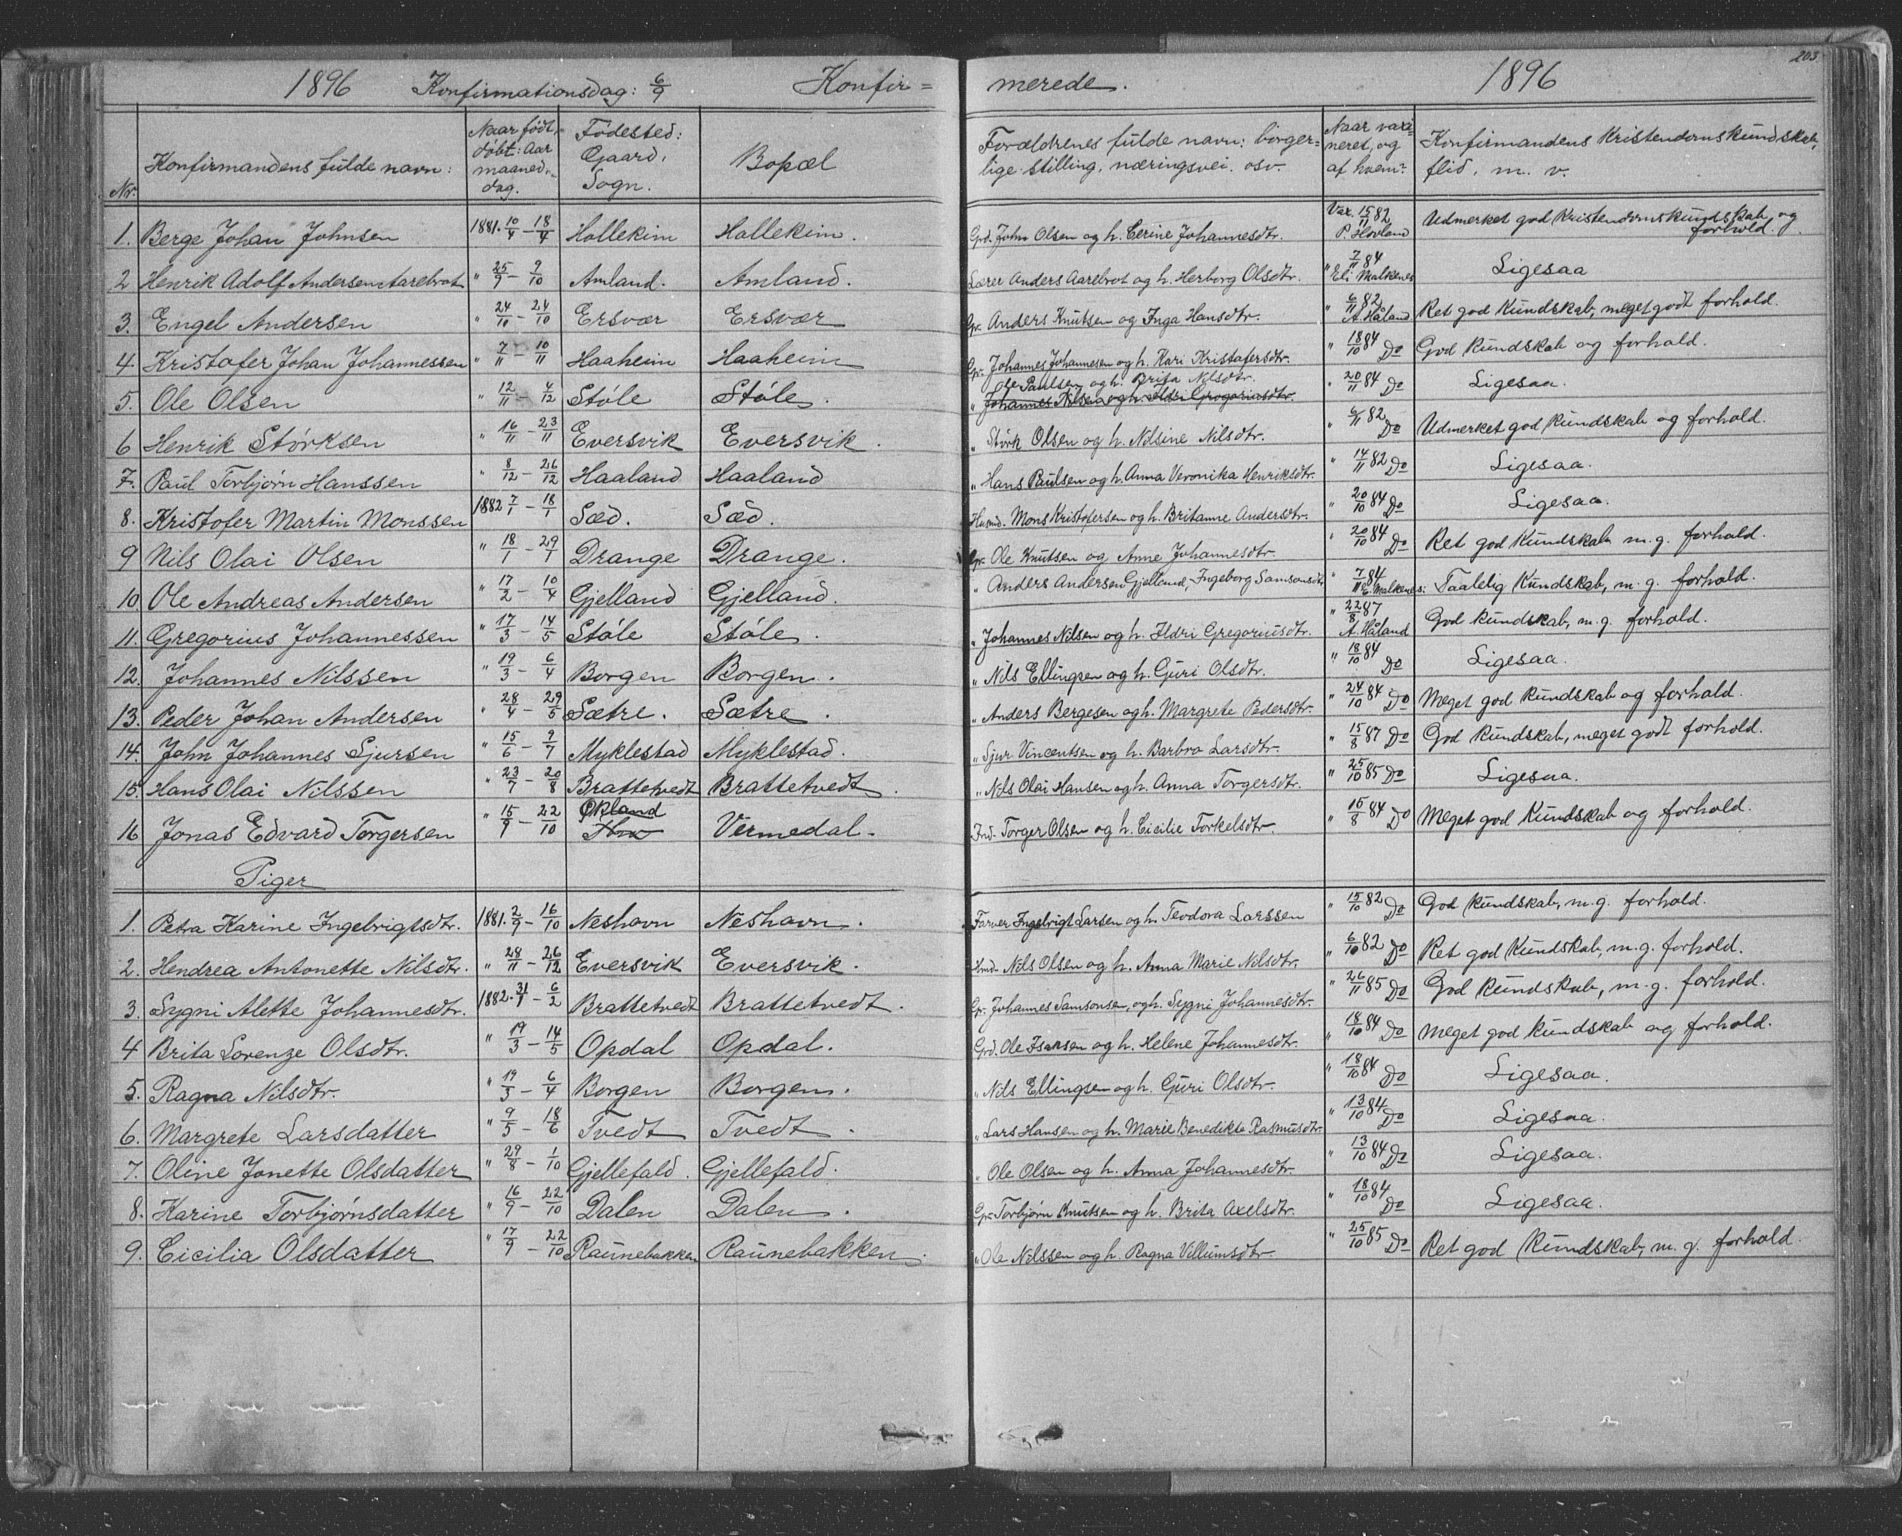 203
1896 Konfirmationsdag: 6/9 Konfir= merede. 1896
Nr. Konfirmandens fulde navn: Naar født, døbt: Aar maaned, dag. Fødested: Gaard, Sogn. Bopæl Forældrenes fulde navn: borger=lige stilling, næringsvei. osv. Naar vaxi=neret, og af hvem? Konfirmandens Kristendomskundskab, flid, m. v.
1. Berge Johan Johnsen 1881. 10/4 - 18/4 Hollekim Hollekim. Gpd. John Olsen og h. Cerine Johannesdtr. Vax. 15/11 82 P. Hovland Udmerket god Kristendomskundskab, og forhold.
2 Henrik Adolf Andersen Aarebrot " 25/9 - 9/10 Amland. Amland. Lærer Anders Aarebrot og h. Herborg Olsdtr. " 7/11 84 Eli Malkenes Ligesaa
3. Engel Andersen " 24/10 - 24/10 Ersvær Ersvær Gp. Anders Knutsen og Inga Hansdtr. " 6/11 82 A. Håland Ret god Kundskab, meget godt forhold.
4 Kristofer Johan Johannessen " 7/11 - 10/11 Haaheim Haaheim Gp. Johannes Johannesen og h. Kari Kristofersdtr. " 18/10 84 Do God kundskab og forhold.
5. Ole Olsen " 12/11 - 4/12 Støle Støle. Ole Paulsen og h. Brita Nilsdtr. " Johannes Nilsen og h. Ildri Gregoriusdtr. " 20/11 84 Do Ligesaa.
6 Henrik Størksen " 16/11 - 23/11 Eversvik Eversvik. " Størk Olsen og h. Nilsine Nilsdtr. " 6/11 82 Do Udmerket god kundskab og forhold.
7. Paul Torbjørn Hanssen " 8/12 - 26/12 Haaland Haaland " Hans Paulsen og h. Anna Veronika Henriksdtr. " 14/11 82 Do Ligesaa.
8. Kristofer Martin Monssen 1882 7/1 - 18/1 Sæd. Sæd. Husmd. Mons Kristofersen og h. Britanne Andersdtr. " 20/10 84 Do Ligesaa.
9 Nils Olai Olsen " 18/1 - 29/1 Drange Drange. Gp. Ole Knutsen og Anne Johannesdtr " 20/10 84 Do Ret god Kundskab m. g. forhold.
10. Ole Andreas Andersen " 17/2 - 10/4 Gjelland Gjelland. " Anders Andersen Gjelland, Ingeborg Samsonsdtr " 7/11 84 E. Malkenes: Taalelig Kundskab, m. g. forhold.
11. Gregorius Johannessen " 17/3 - 14/5 Støle Støle. " Johannes Nilsen og h. Ildri Gregoriusdtr. " 22/8 87 A. Håland God kundskab, m. g. forhold.
12. Johannes Nilssen " 19/3 - 6/4 Borgen Borgen. " Nils Ellingsen og h. Guri Olsdtr. " 18/10 84 Do Ligesaa.
13. Peder Johan Andersen " 28/4 - 29/5 Sætre. Sætre. " Anders Bergesen og h. Margrete Pedersdtr. " 24/10 84 Do Meget god kundskab og forhold.
14. John Johannes Sjursen " 15/6 - 9/7 Myklestad Myklestad. " Sjur Vincentsen og h. Barbra Larsdtr. " 15/8 87 Do God kundskab, meget godt forhold.
15. Hans Olai Nilssen " 23/7 - 20/8 Brattetvedt Brattetvedt. " Nils Olai Hansen og h. Anna Torgersdtr. " 25/10 85 Do Ligesaa.
16 Jonas Edvard Torgersen " 15/9 - 22/10 Økland Vermedal. Ind. Torger Olsen og h. Cicilie Torkelsdtr. " 15/8 84 Do Meget god Kundskab og forhold.
Piger
1. Petra Karine Ingebrigtsdtr. 1881. 2/9 - 16/10 Neshavn Neshavn. Farver Ingebrigt Larsen og h. Teodora Larssen " 15/10 82 Do God kundskab, m. g. forhold.
2. Hendrea Antonette Nilsdtr. " 28/11 - 26/12 Eversvik Eversvik. Hmd. Nils Olsen og h. Anna Marie Nilsdtr. " 6/10 82 Do Ret god Kundskab, m. g. forhold.
3. Sygni Alette Johannesdtr. 1882. 31/1 - 6/2 Brattetvedt Brattetvedt. Gp. Johannes Samsonsen, og h. Sygni Johannesdtr. " 26/11 85 Do God kundskab, m. g. forhold.
4 Brita Lorenze Olsdtr. " 19/3 - 14/5 Opdal Opdal. Grd. Ole Isaksen og h. Helene Johannesdtr. " 18/10 84 Do Meget god kundskab og forhold.
5. Ragna Nilsdtr. " 19/3 - 6/4 Borgen Borgen. " Nils Ellingsen og h. Guri Olsdtr. " 18/10 84 Do Ligesaa.
6. Margrete Larsdatter " 9/5 - 18/6 Tvedt Tvedt. " Lars Hansen og h. Marie Benedikte Rasmusdtr. " 13/10 84 Do Ligesaa.
7. Oline Jonette Olsdatter " 29/8 - 1/10 Gjellefald. Gjellefald. " Ole Olsen og h. Anna Johannesdtr. " 13/10 84 Do Ligesaa.
8. Karine Torbjørnsdatter " 16/9 - 22/10 Dalen Dalen. Gp. Torbjørn Knutsen og h. Brita Axelsdtr. " 18/10 84 Do Ligesaa.
9. Cicilia Olsdatter " 17/9 - 22/10 Raunebakken Raunebakken. " Ole Nilssen og h. Ragna Villumsdtr. " 25/10 85 Do Ret god kundskab, m. g. forhold.